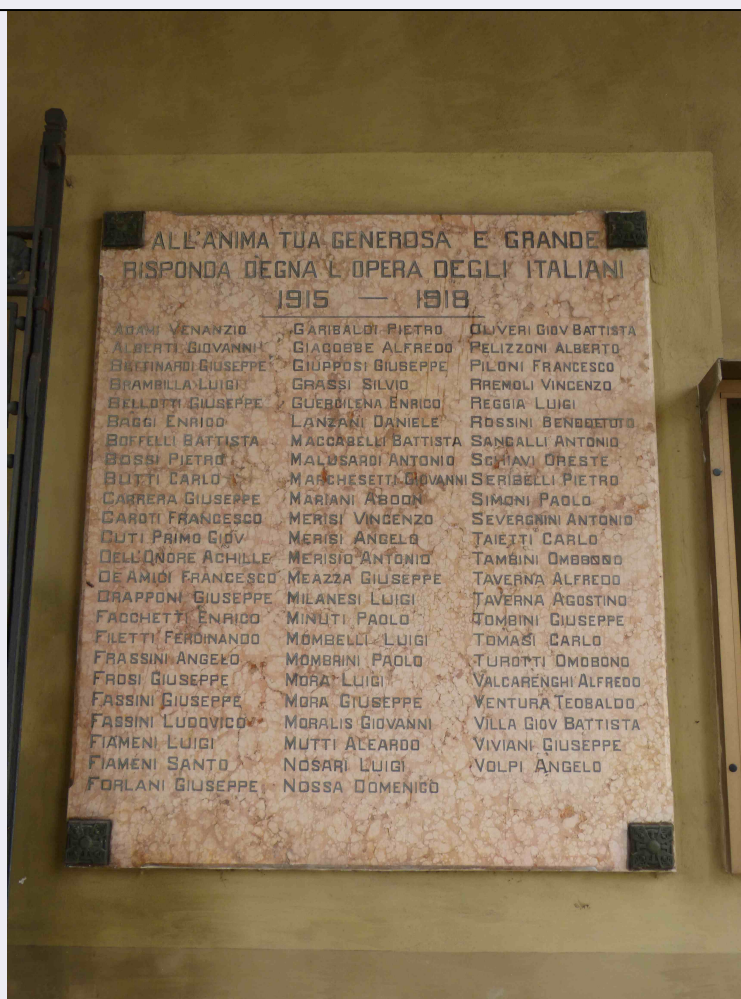 ALL'ANIMA TUA GENEROSA E GRANDE
RISPONDA DEGNA L'OPERA DEGLI ITALIANI
1915 — 1918
ADAMI VENANZIO
ALBERTI GIOVANNI
BETTINARDI GIUSEPPE
BRAMBILLA LUIGI
BELLOTTI GIUSEPPE
BAGGI ENRICO
BOFFELLI BATTISTA
BOSSI PIETRO
BUTTI CARLO
CARRERA GIUSEPPE
CAROTI FRANCESCO
CUTI PRIMO GIOV
DELL'ONORE ACHILLE
DE AMICI FRANCESCO
DRAPPONI GIUSEPPE
FACCHETTI ENRICO
FILETTI FERDINANDO
FRASSINI ANGELO
FROSI GIUSEPPE
FASSINI GIUSEPPE
FASSINI LUDOVICO
FIAMENI LUIGI
FIAMENI SANTO
FORLANI GIUSEPPE
GARIBALDI PIETRO
GIACOBBE ALFREDO
GIUPPOSI GIUSEPPE
GRASSI SILVIO
GUERCILENA ENRICO
LANZANI DANIELE
MACCABELLI BATTISTA
MALUSARDI ANTONIO
MARCHESETTI GIOVANNI
MARIANI ABDON
MERISI VINCENZO
MERISI ANGELO
MERISIO ANTONIO
MEAZZA GIUSEPPE
MILANESI LUIGI
MINUTI PAOLO
MOMBELLI LUIGI
MOMBRINI PAOLO
MORA LUIGI
MORA GIUSEPPE
MORALIS GIOVANNI
MUTTI ALEARDO
NOSARI LUIGI
NOSSA DOMENICO
OLIVERI GIOV BATTISTA
PELIZZONI ALBERTO
PILONI FRANCESCO
RREMOLI VINCENZO
REGGIA LUIGI
ROSSINI BENEDETUTO
SANGALLI ANTONIO
SCHIAVI ORESTE
SERIBELLI PIETRO
SIMONI PAOLO
SEVERGNINI ANTONIO
TAIETTI CARLO
TAMBINI OMOBONO
TAVERNA ALFREDO
TAVERNA AGOSTINO
TOMBINI GIUSEPPE
TOMASI CARLO
TUROTTI OMOBONO
VALCARENGHI ALFREDO
VENTURA TEOBALDO
VILLA GIOV BATTISTA
VIVIANI GIUSEPPE
VOLPI ANGELO